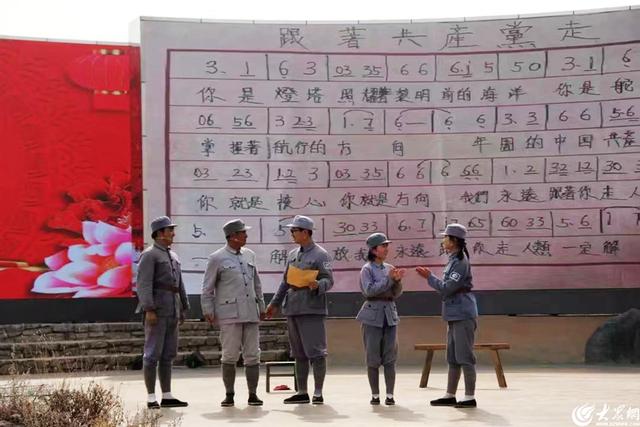 跟著共産黨走
3. 1 6 3 03 35 6 6 6.1 5 5 0 3.1 6
你是燈塔 照耀著黎明前的海洋 你是舵
06 56 3 23 1.7 6 6 6 3.3 6 6 5.6
掌握著航行的方向 年圍的中国共產
03 23 1 2 3 03 35 6 6 6 66 1.2 32 12 30
你就是核心 你就是方向 我們永遠跟著你走 人
5. 5. 30 33 6.7 65 60 33 5.6 1
解 放 我 永遠 走 人類一定解
大众网